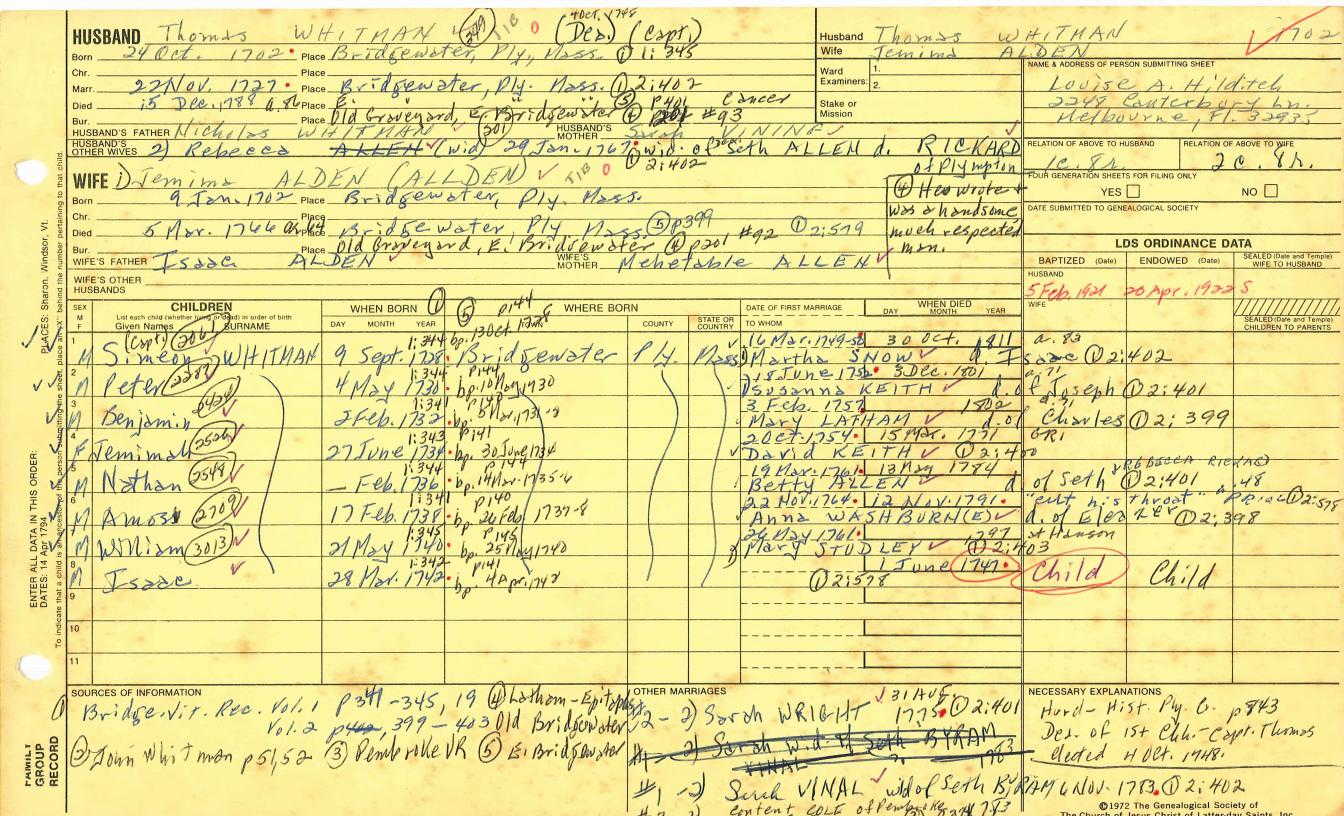 HUSBAND Thomas WHITMAN 279 TIB 0 4 Oct. 1748 (Dea.) (Capt.)
Born 24 Oct. 1702 Place Bridgewater, Ply, Mass. ① 1:345
Chr. Place
Marr. 22 Nov. 1727 Place Bridgewater, Ply. Mass. ① 2:402
Died 15 Dec. 1788 a. 86 Place E. " " ⑤ p401 Cancer
Bur. Place Old Graveyard, E. Bridgewater #93
HUSBAND'S FATHER Nicholas WHITMAN 201 HUSBAND'S MOTHER Sarah VINING
HUSBAND'S OTHER WIVES 2) Rebecca ALLEN (wid) 29 Jan. 1767 wid. of Seth ALLEN d. RICKARD of Plympton
① 2:402
WIFE 1) Jemima ALDEN (ALLDEN) TIB 0
Born 9 Jan. 1702 Place Bridgewater, Ply. Mass.
Chr. Place
Died 5 Mar. 1766 a. 64 Place Bridgewater, Ply Mass. ⑤ p399 ① 2:579
Bur. Place Old Graveyard, E. Bridgewater ④ p201 #92
④ He wrote + was a handsome, much respected man.
WIFE'S FATHER Isaac ALDEN WIFE'S MOTHER Mehetable ALLEN
WIFE'S OTHER HUSBANDS
Husband Thomas WHITMAN 1702
Wife Jemima ALDEN
Ward Examiners: 1.
2.
Stake or Mission
NAME & ADDRESS OF PERSON SUBMITTING SHEET
Louise A. Hilditch
2248 Canterbury Ln.
Melbourne, Fl. 32935
RELATION OF ABOVE TO HUSBAND RELATION OF ABOVE TO WIFE
1c. 8r. 2c. 8r.
FOUR GENERATION SHEETS FOR FILING ONLY
YES NO
DATE SUBMITTED TO GENEALOGICAL SOCIETY
LDS ORDINANCE DATA
BAPTIZED (Date) ENDOWED (Date) SEALED (Date and Temple) WIFE TO HUSBAND
HUSBAND
5 Feb. 1921 20 Apr. 1922 S
WIFE
SEALED (Date and Temple) CHILDREN TO PARENTS
SEX M F CHILDREN WHEN BORN ① ⑤ p144 WHERE BORN DATE OF FIRST MARRIAGE WHEN DIED
List each child (whether living or dead) in order of birth
Given Names SURNAME DAY MONTH YEAR COUNTY STATE OR COUNTRY TO WHOM DAY MONTH YEAR
1 M (Capt) Simeon 2061 WHITMAN 9 Sept. 1728 1:344 bp. 13 Oct. 1728 Bridgewater Ply. Mass 16 Mar. 1749-50 30 Oct. 1811 a. 83
Martha SNOW d Isaac ① 2:402
2 M Peter 2287 4 May 1730 1:344 p144 bp. 10 May 1730 18 June 1752 3 Dec. 1801 a. 71
Susanna KEITH d. of Joseph ① 2:401
3 M Benjamin 2424 2 Feb. 1732 1:341 p140 3 Feb. 1757 1802 a. 71
Mary LATHAM d. of Charles ① 2:399
4 F Jemimah 2526 27 June 1734 1:343 p141 bp. 30 June 1734 2 Oct. 1754 15 Mar. 1771 GR1
David KEITH ① 2:400
5 M Nathan 2548 — Feb. 1736 1:344 p144 bp. 14 Mar. 1735-6 19 Mar. 1761 13 May 1784
Betty ALLEN d of Seth ① 2:401 a. 48
6 M Amos 2709 17 Feb. 1738 1:341 p140 bp. 26 Feb 1737-8 22 Nov. 1764 12 Nov. 1791 "cut his throat" ① 2:578
Anna WASHBURN(E) d. of Eleazer ① 2:398
7 M William 3013 21 May 1740 1:345 p145 bp. 25 May 1740 26 May 1761 at Hanson
Mary STUDLEY ① 2:403
8 M Isaac 28 Mar. 1742 1:342 p141 bp. 4 Apr. 1742 1 June 1747 Child Child
① 2:578
9
10
11
ENTER ALL DATA IN THIS ORDER:
DATES: 14 Apr 1794 PLACES: Sharon, Windsor, Vt.
FAMILY GROUP RECORD
SOURCES OF INFORMATION
① Bridge. Vit. Rec. Vol. 1 p341-345, 19 ④ Latham-Epitaphs
Vol. 2 399-403 Old Bridgewater
② John Whitman p51,52 ③ Pembroke VR ⑤ E. Bridgewater
OTHER MARRIAGES
#2 - 2) Sarah WRIGHT 31 Aug. 1775 ① 2:401
#1 - 2) Sarah wid. of Seth BYRAM
VINAL
#1 - 2) Sarah VINAL wid of Seth BYRAM 6 Nov. 1783 ① 2:402
Content COLE of Pembroke
NECESSARY EXPLANATIONS
Hurd - Hist. Ply. C. p843
Dea. of 1st Chh. - Capt. Thomas
elected 4 Oct. 1748.
©1972 The Genealogical Society of
The Church of Jesus Christ of Latter-day Saints, Inc.